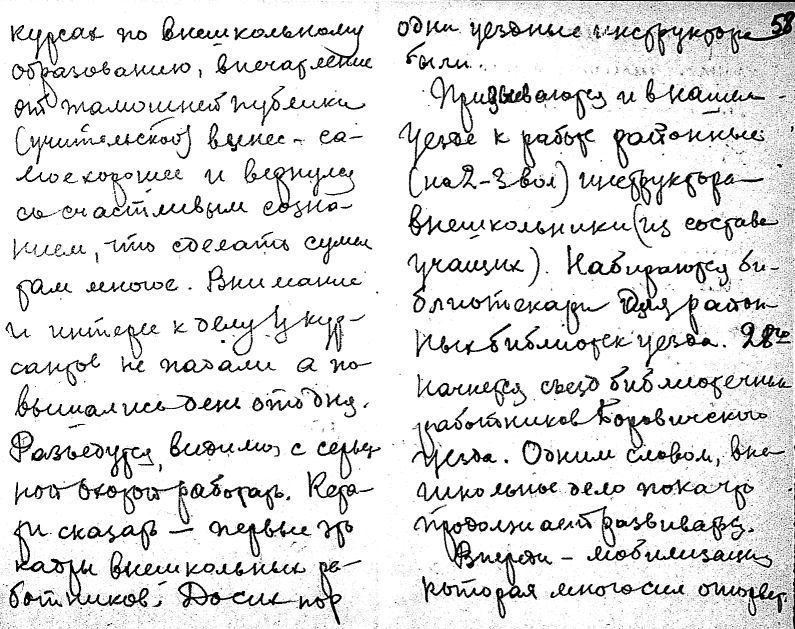 курсах по внешкольному
образованию, впечатление
от тамошней публики
(учительской) вынес са-
мое хорошее и вернулся
со счастливым созна-
нием, что сделать сумел
там многое. Внимание
и интерес к делу у кур-
сантов не падали а по-
вышались день ото дня.
Разъедутся, видимо, с серьез
ной охотой работать. Кста-
ти сказать — первые это
кадры внешкольных ра-
ботников. До сих пор
58
одни уездные инструктора
были.
Призываются и в нашем
уезде к работе районные
(на 2-3 вол) инструктора
внешкольники (из состава
учащих). Набираются би-
блиотекари для район
ных библиотек уезда. 28го
начнется съезд библиотечных
работников Боровичского
уезда. Одним словом, вне
школьное дело пока что
продолжает развиваться.
Впереди – мобилизация
которая много сил оторвет.